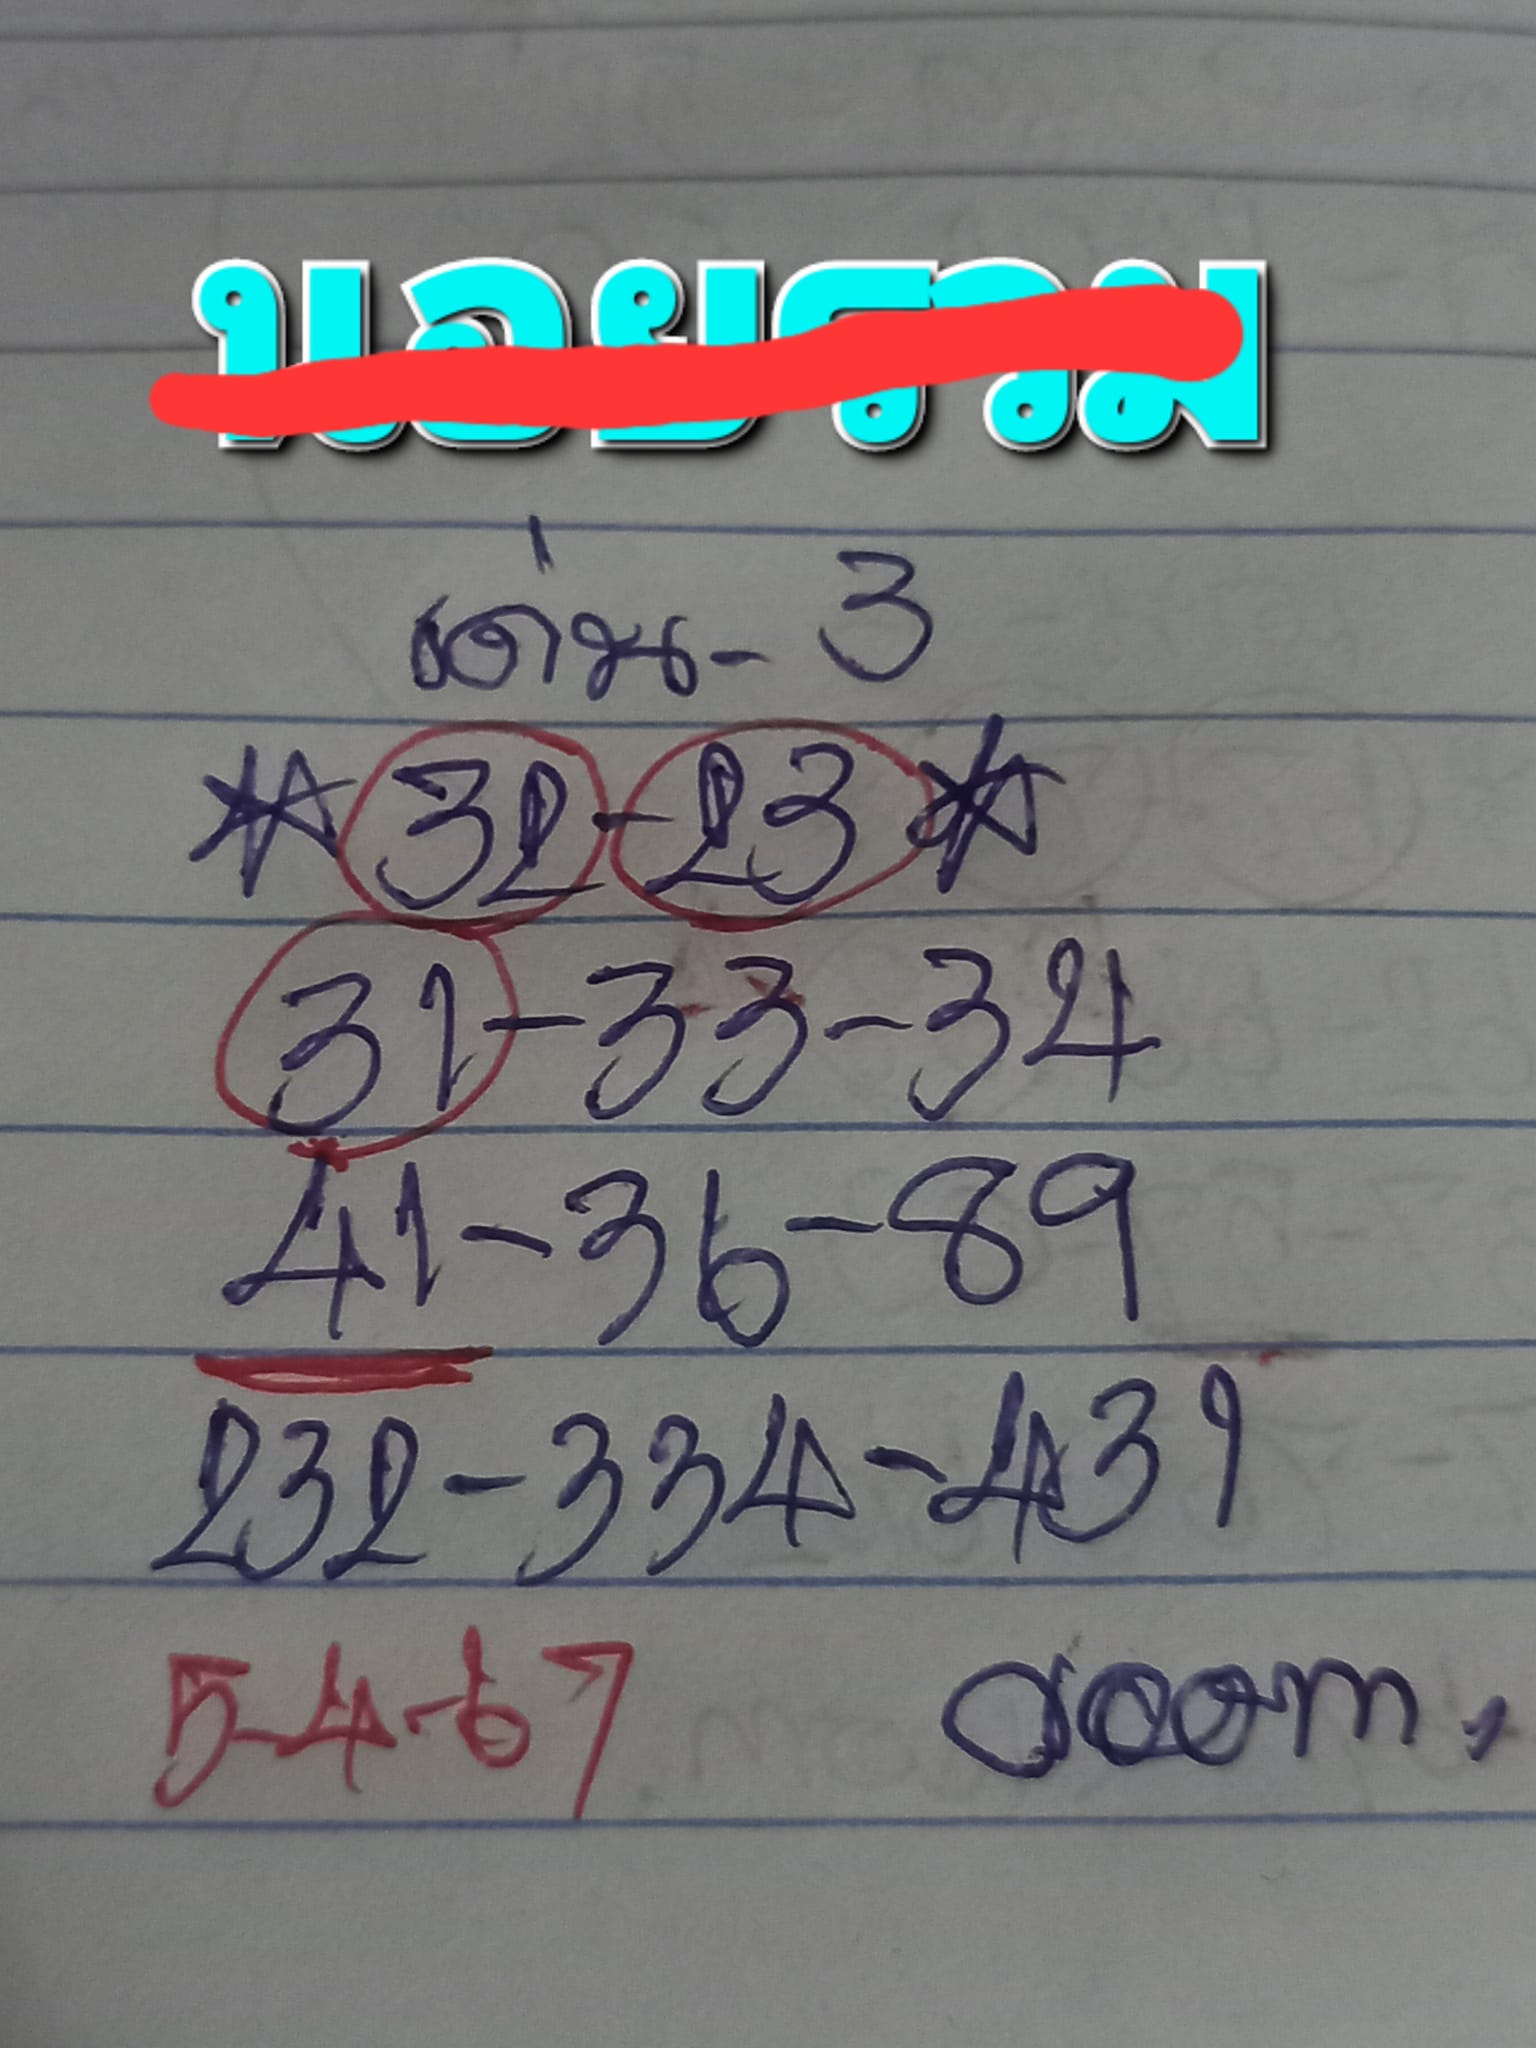 นอยราม
เด่น- 3
32-23
31-33-34
41-36-89
232-334-431
5-4-67